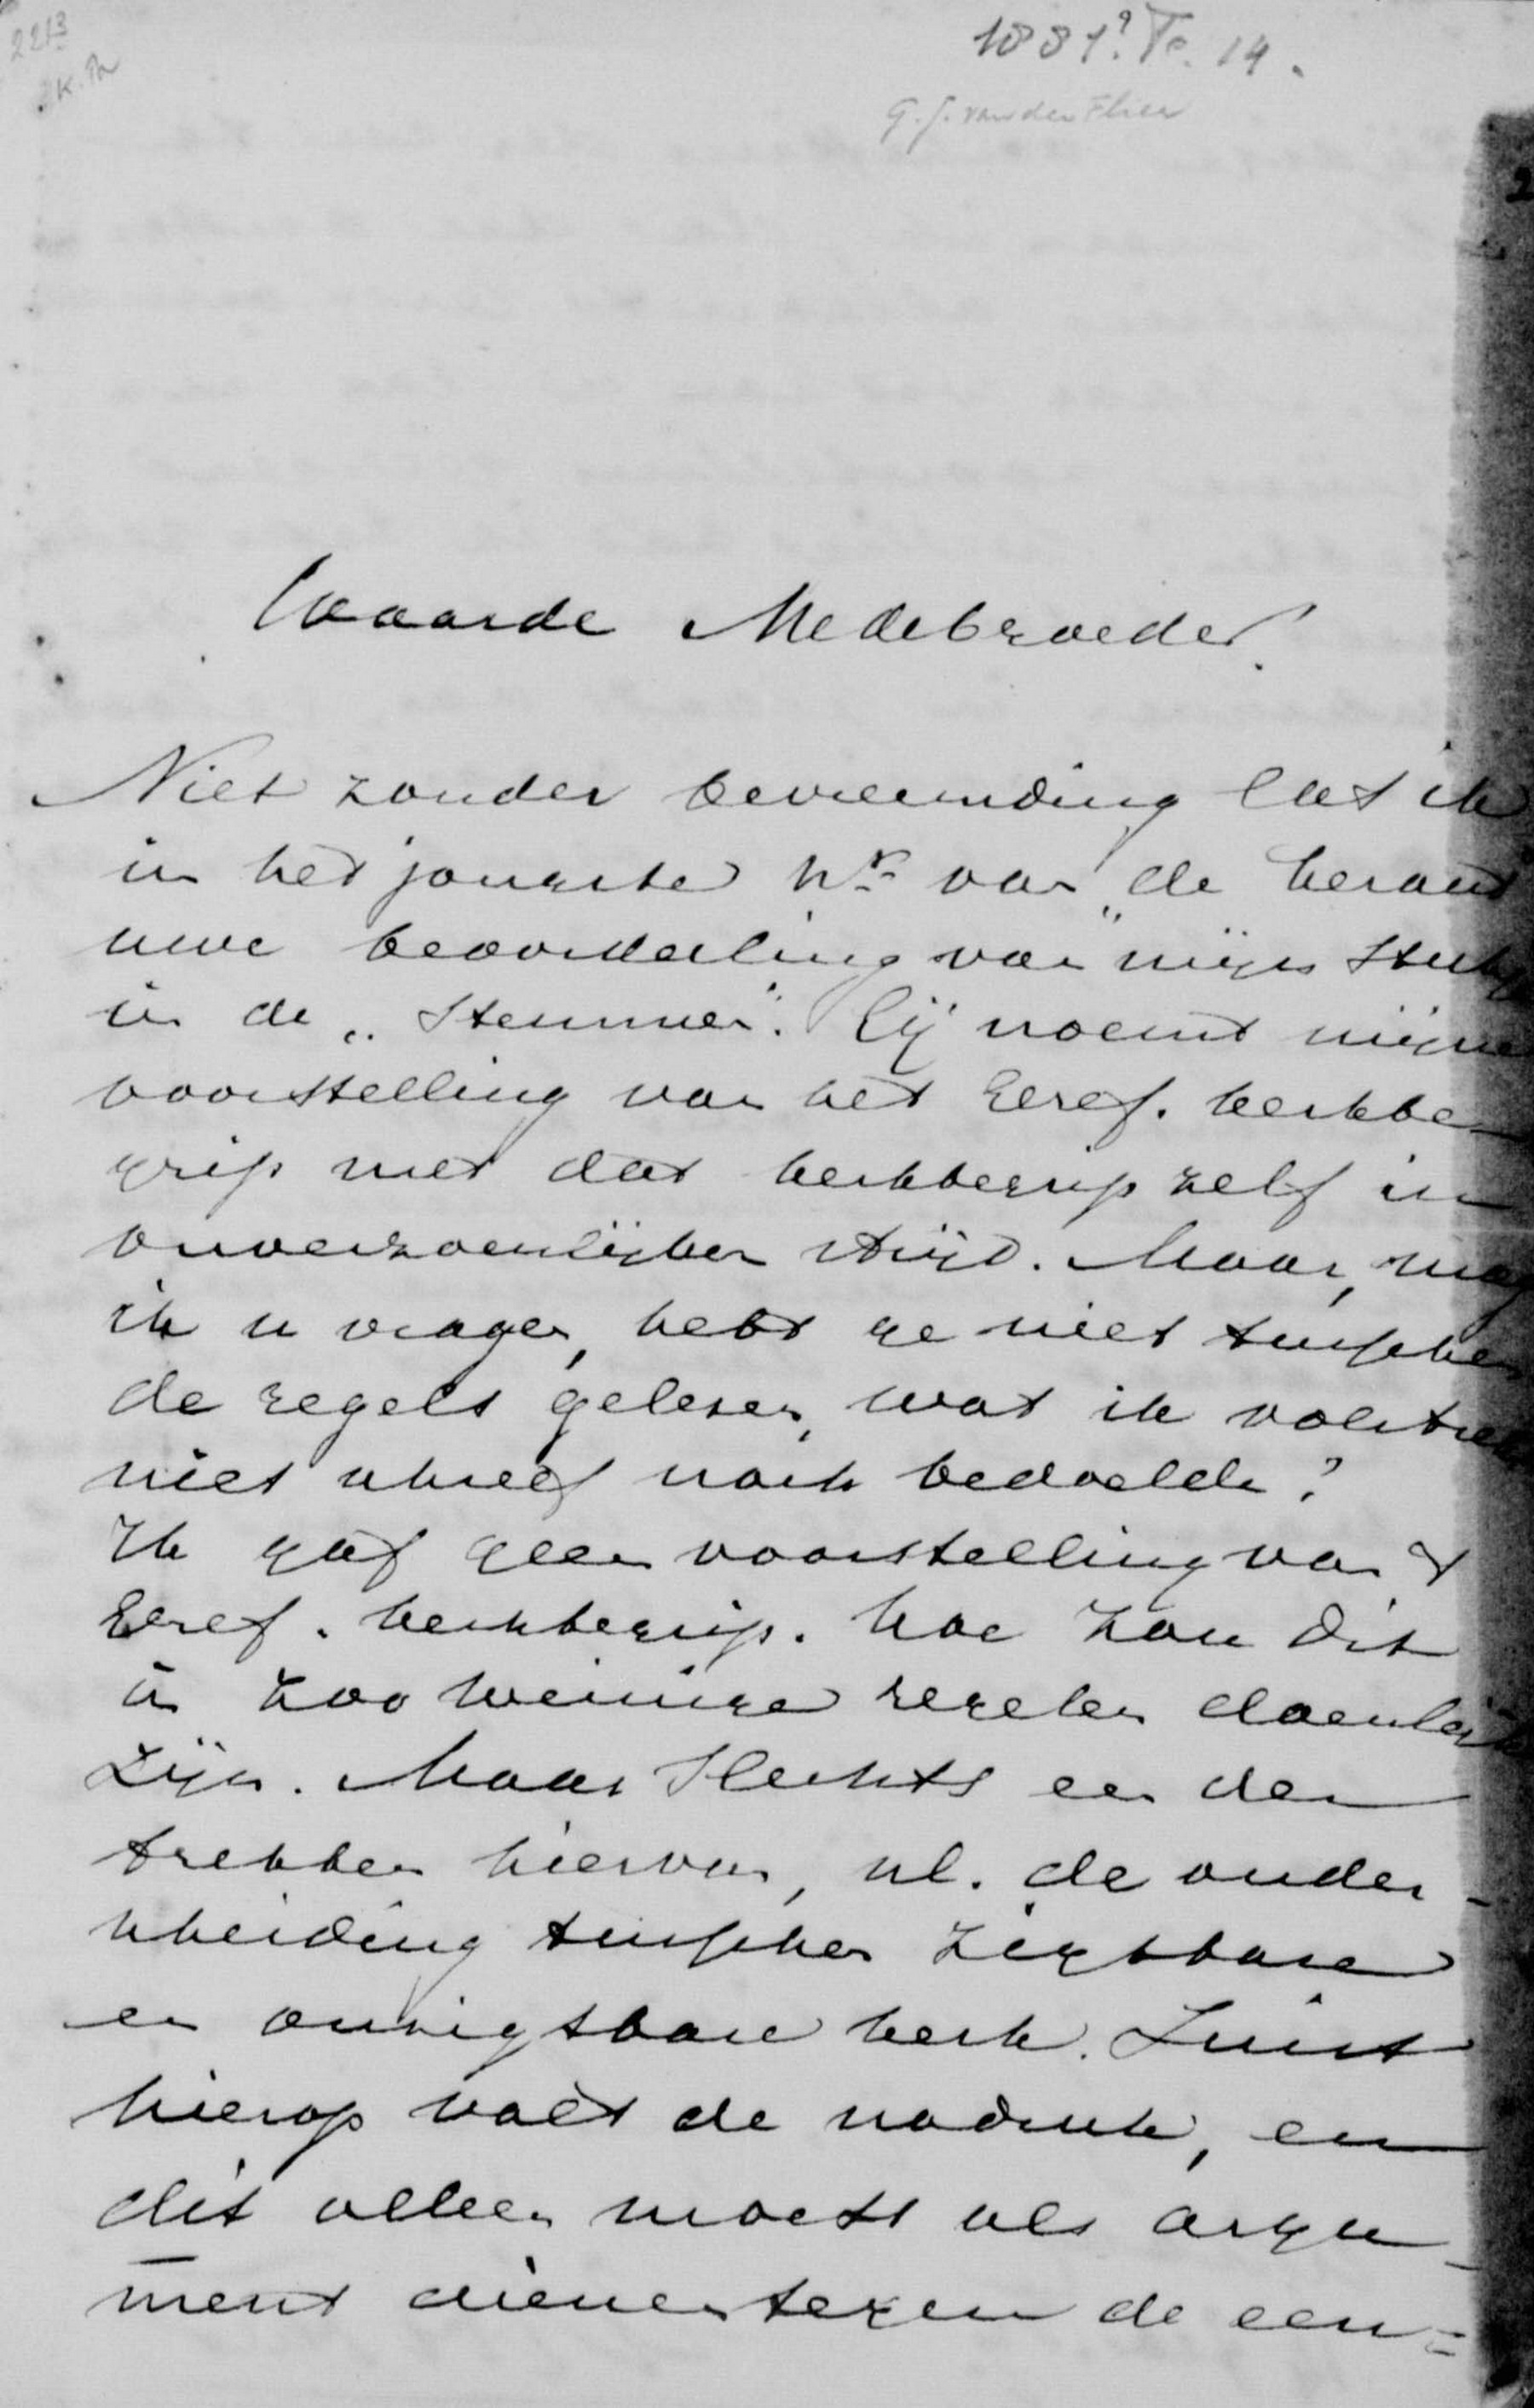 2213
1881? Fe. 14.
G. J. van der Flier
Waarde Medebroeder!
Niet zonder bevreemding las ik
in het jongste Nr van „de Heraut
uwe beoordeeling van mijn stukje
in de „Stemmen". Gij noemt mijne
voorstelling van het Geref. kerkbe-
grip met dat kerkbegrip zelf in
onverzoenlijken strijd. Maar, mag
ik u vragen, hebt ge niet tusschen
de regels gelezen, wat ik volstrekt
niet schreef noch bedoelde?
Ik gaf geen voorstelling van 't
Geref. kerkbegrip. Hoe zou dit
in zoo weinige regelen doenlijk
zijn. Maar slechts een der
trekken hiervan, nl. de onder-
scheiding tusschen zigtbare
en onzigtbare kerk. Juist
hierop valt de nadruk, en
dit alleen moest als argu-
ment dienen tegen de een=